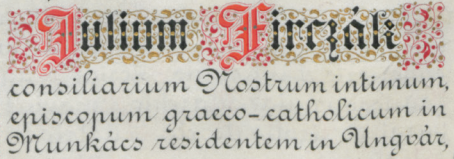 Iulium Firczák
consiliarium Nostrum intimum,
episcopum graeco-catholicum in
Munkács residentem in Ungvár,